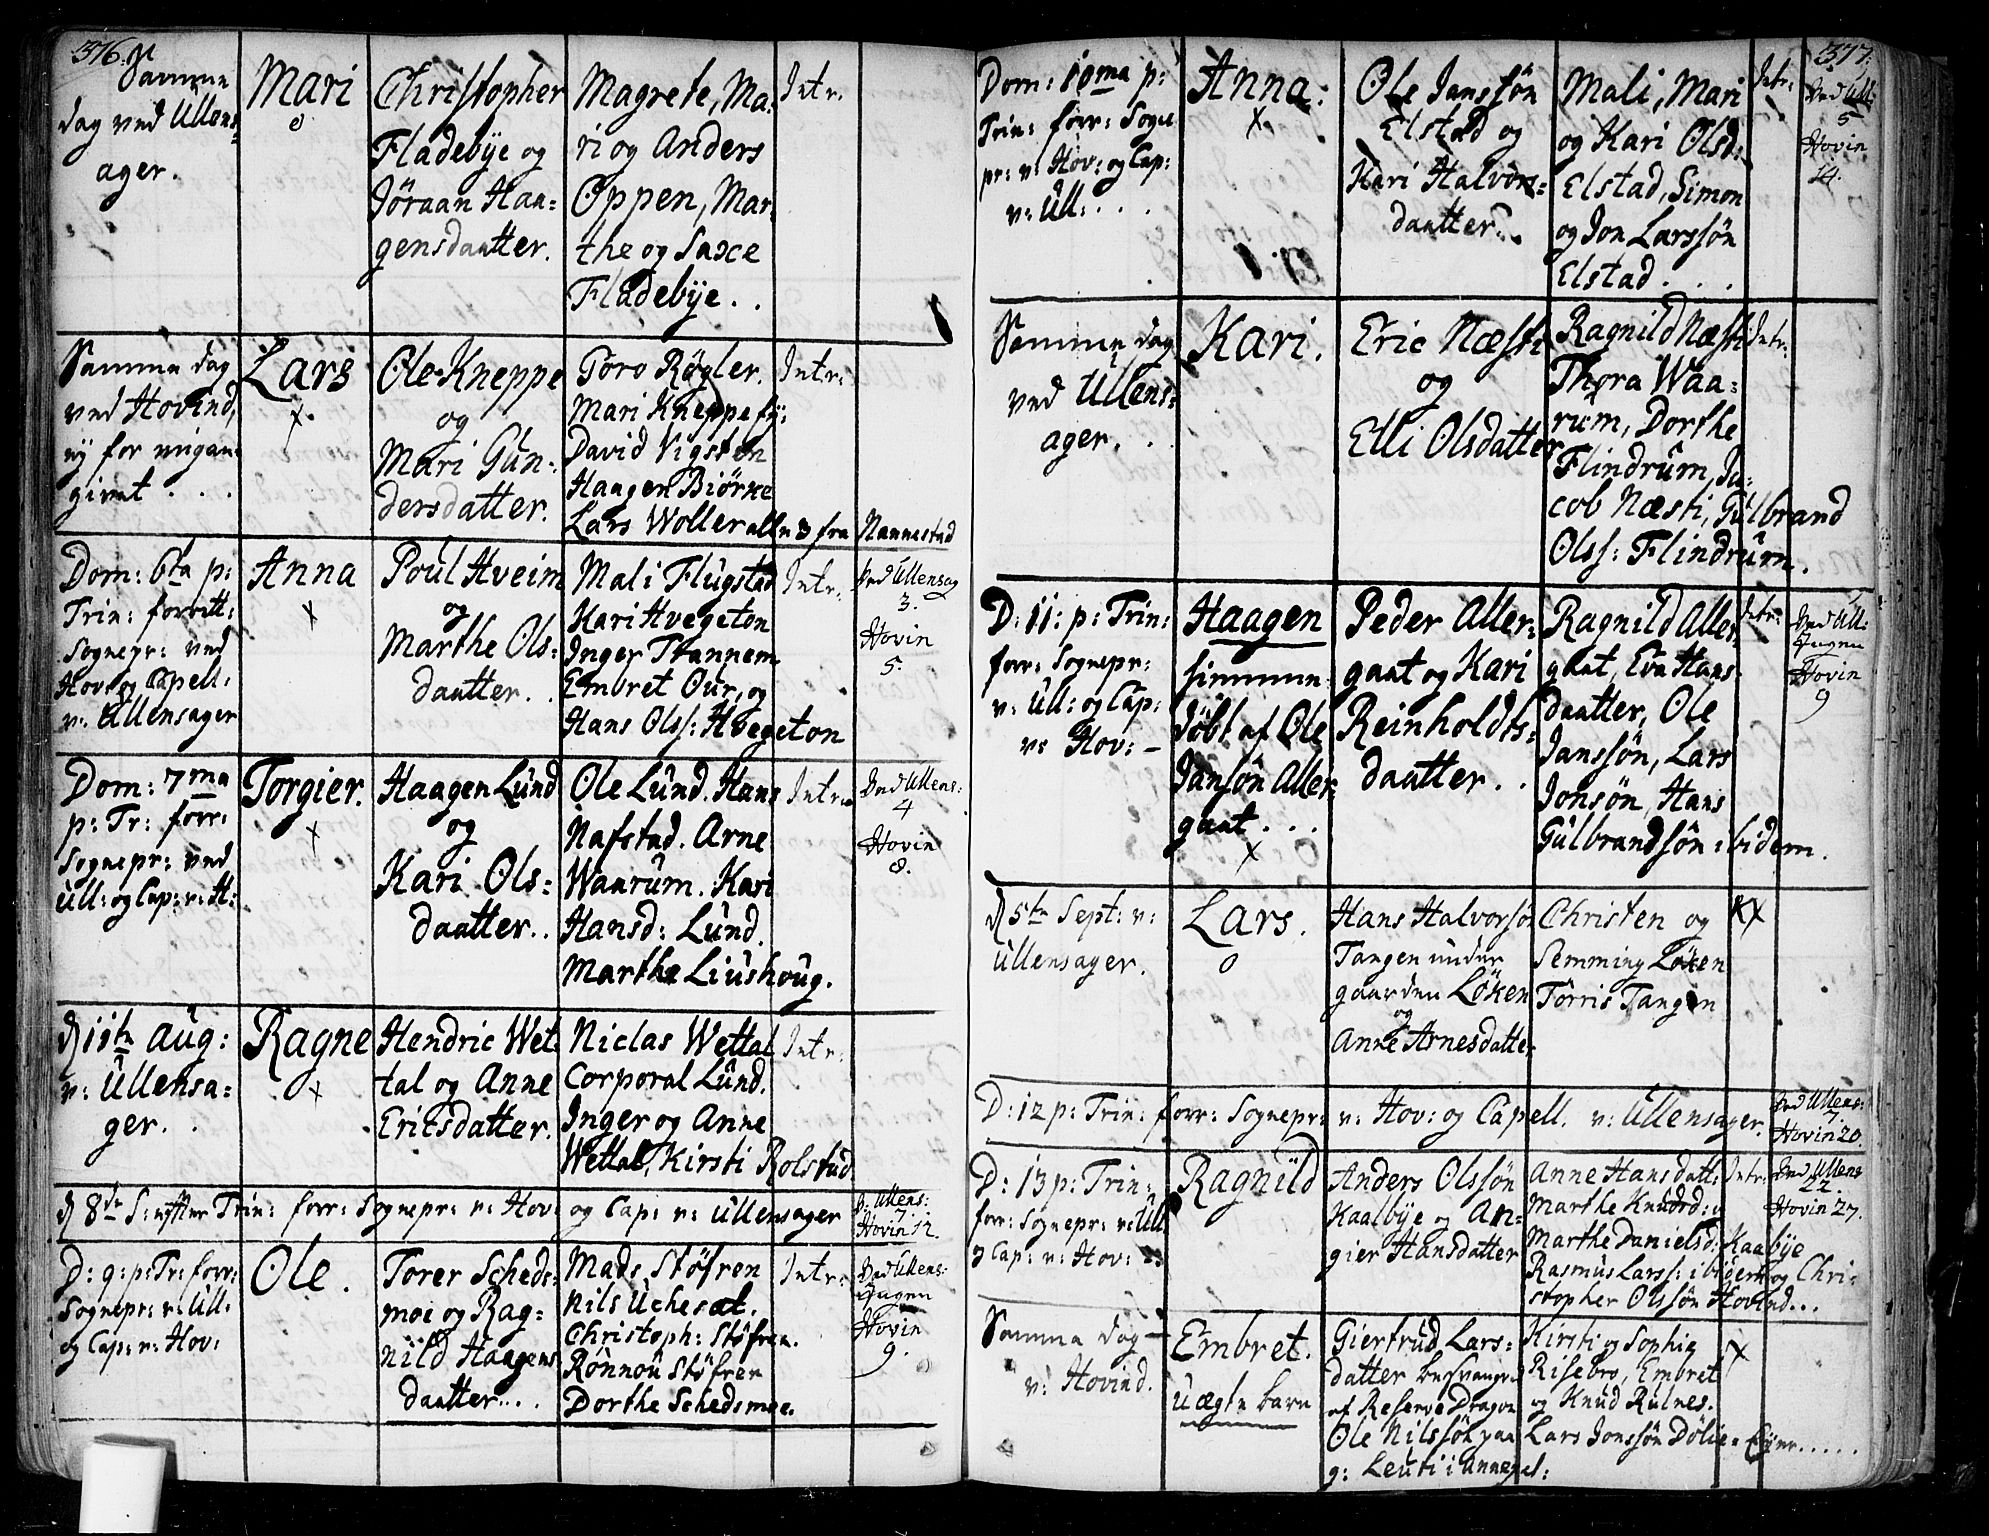 376.
Samme
dag ved Ullens-
ager.
Mari
Christopher
Fladebÿe og
Jöraan Haa=
gensdaatter.
Magrete, Ma=
ri og Anders
Oppen, Mar=
the og Saxe
Fladebÿe . .
Intr.
Samme dag
ved Hovind,
ej for mig an=
givet . . .
Lars
x.
Ole Kneppe
og
Mari Gun=
dersdatter.
Toro Røgler.
Mari Kneppe
David Vigsten
Haagen Biörke
Lars Woller alle 3 fra Nannestad
Intr:
Dom: 6ta p:
Trin: forrett:
Sognepr: ved
Hov: og Capell:
v: Ullensager
Anna
x
Poul Hveim
og
Marthe Ols=
daatter. .
Mali Flugstad
Kari Hvegeton
Inger Trannem
Embret Our, og
Hans Olss: Hvegeton
Intr.
Ved Ullensag
3.
Hovin
5.
Dom: 7ma
p: Tr: forr:
Sognepr: ved
Ull: og Cap: v: H:
Torgier.
x
Haagen Lund
og
Kari Ols=
daatter. .
Ole Lund. Hans
Nafstad. Arne
Waarum. Kari
Hansd: Lund.
Marthe Liushoug.
Intr.
Ved Ullens:
4
Hovin
8.
d 11te Aug:
v: Ullensa=
ger. .
Ragne
x
Hendric Wet
tal og Anne
Ericsdatter.
Niclas Wettal
Corporal Lund.
Inger og Anne
Wettal, Kirsti Rolstad
Intr.
d 8de S: efter Trin: forr: Sognepr: v: Hov: og Cap: v: Ullensager
V: Ullens:
7.
Hovin 12.
D: 9: p: Tr: forr:
Sognepr: v: Ull:
og Cap: v: Hov:
Ole.
Torer Scheds=
moe og Rag=
nild Haagens
daatter. . .
Mads Stöfren
Nils Uchesæt.
Christoph: Stöfren.
Rönnou Stöfren
Dorthe Schedsmoe.
Intr:
Ved Ullens:
Ingen
Hovin
9.
377.
Dom: 10ma p:
Trin: forr: Sogne
pr: v: Hov: og Cap:
v: Ull: . . .
Anna:
x
Ole Janssön
Elstad og
Kari Halvors=
daatter. .
Mali, Mari
og Kari Olsd:
Elstad, Simon
og Jon Larssön
Elstad . . .
Intr:
Ved Ull:
5
Hovin
14.
Samme dag
ved Ullens=
ager. .
Kari.
Eric Næsti
og
Elli Olsdatter
Ragnild Næsti
Thora Waa=
rum, Dorthe
Flindrum, Ja=
cob Næsti, Gulbrand
Olss: Flindrum.
Intr:
D: 11: p: Trin:
forr: Sognepr:
v: Ull: og Cap:
v: Hov: -
Haagen
hiemme
döbt af Ole
Jansön Aller
gaat . . .
x
Peder Aller=
gaat og Kari
Reinholdts=
daatter . .
Ragnild Aller
gaat, Eva Hans
daatter, Ole
Janssön, Lars
Jonsön, Hans
Gulbrandsön ibidem.
Intr:
Ved Ull:
Ingen
Hovin
9
d 5te Sept: v:
Ullensager.
Lars.
o
Hans Halvorsön
Tangen under
gaarden Löken
og
Anne Arnesdatter
Christen og
Semming Löken
Torris Tangen
D: 12 p: Trin: forr: Sognepr: v: Hov: og Capell. v: Ullensager.
Ved Ullens:
7.
Hovin 20.
D: 13 p: Trin:
forr: Sognepr: v: Ull
og Cap: v: Hov:
Ragnild
Anders Olssön
Kaalbÿe og An=
gier Hansdatter
Anne Hansdatt:
Marthe Knudsd:
Marthe Danielsd: Kaabÿe
Rasmus Larss: ibidem og Chri=
stopher Olssön Hovind...
Intr:
Ved Ullens
22
Hovin 27.
Samme dag
v: Hovind.
Embret.
uægte barn
Giertrud Lars=
datter besvangret
af Reserve Dragon
Ole Nilssön paa
g: Leuti i Annexet:
Kirsti og Sophie
Risebro, Embret
og Knud Rulnes.
Lars Jonssön Dölie=
x